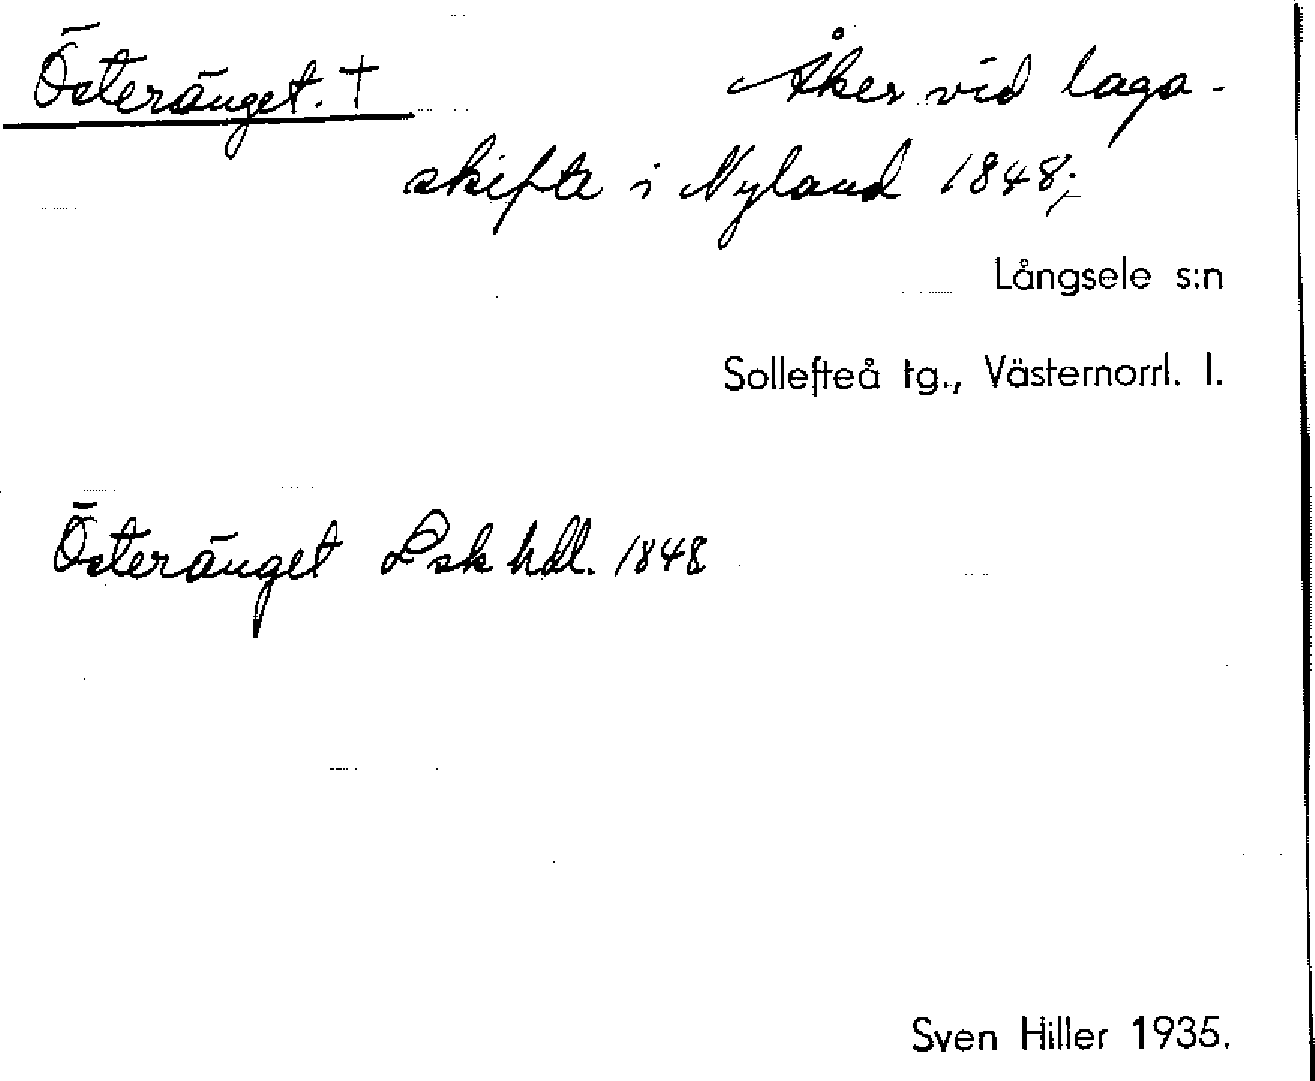 Österänget. † Åker vid laga-
skifte i Nyland 1848;
Långsele s:n
Sollefteå tg., Västernorrl. l.
Österänget Lsk hdl. 1848
Sven Hiller 1935.